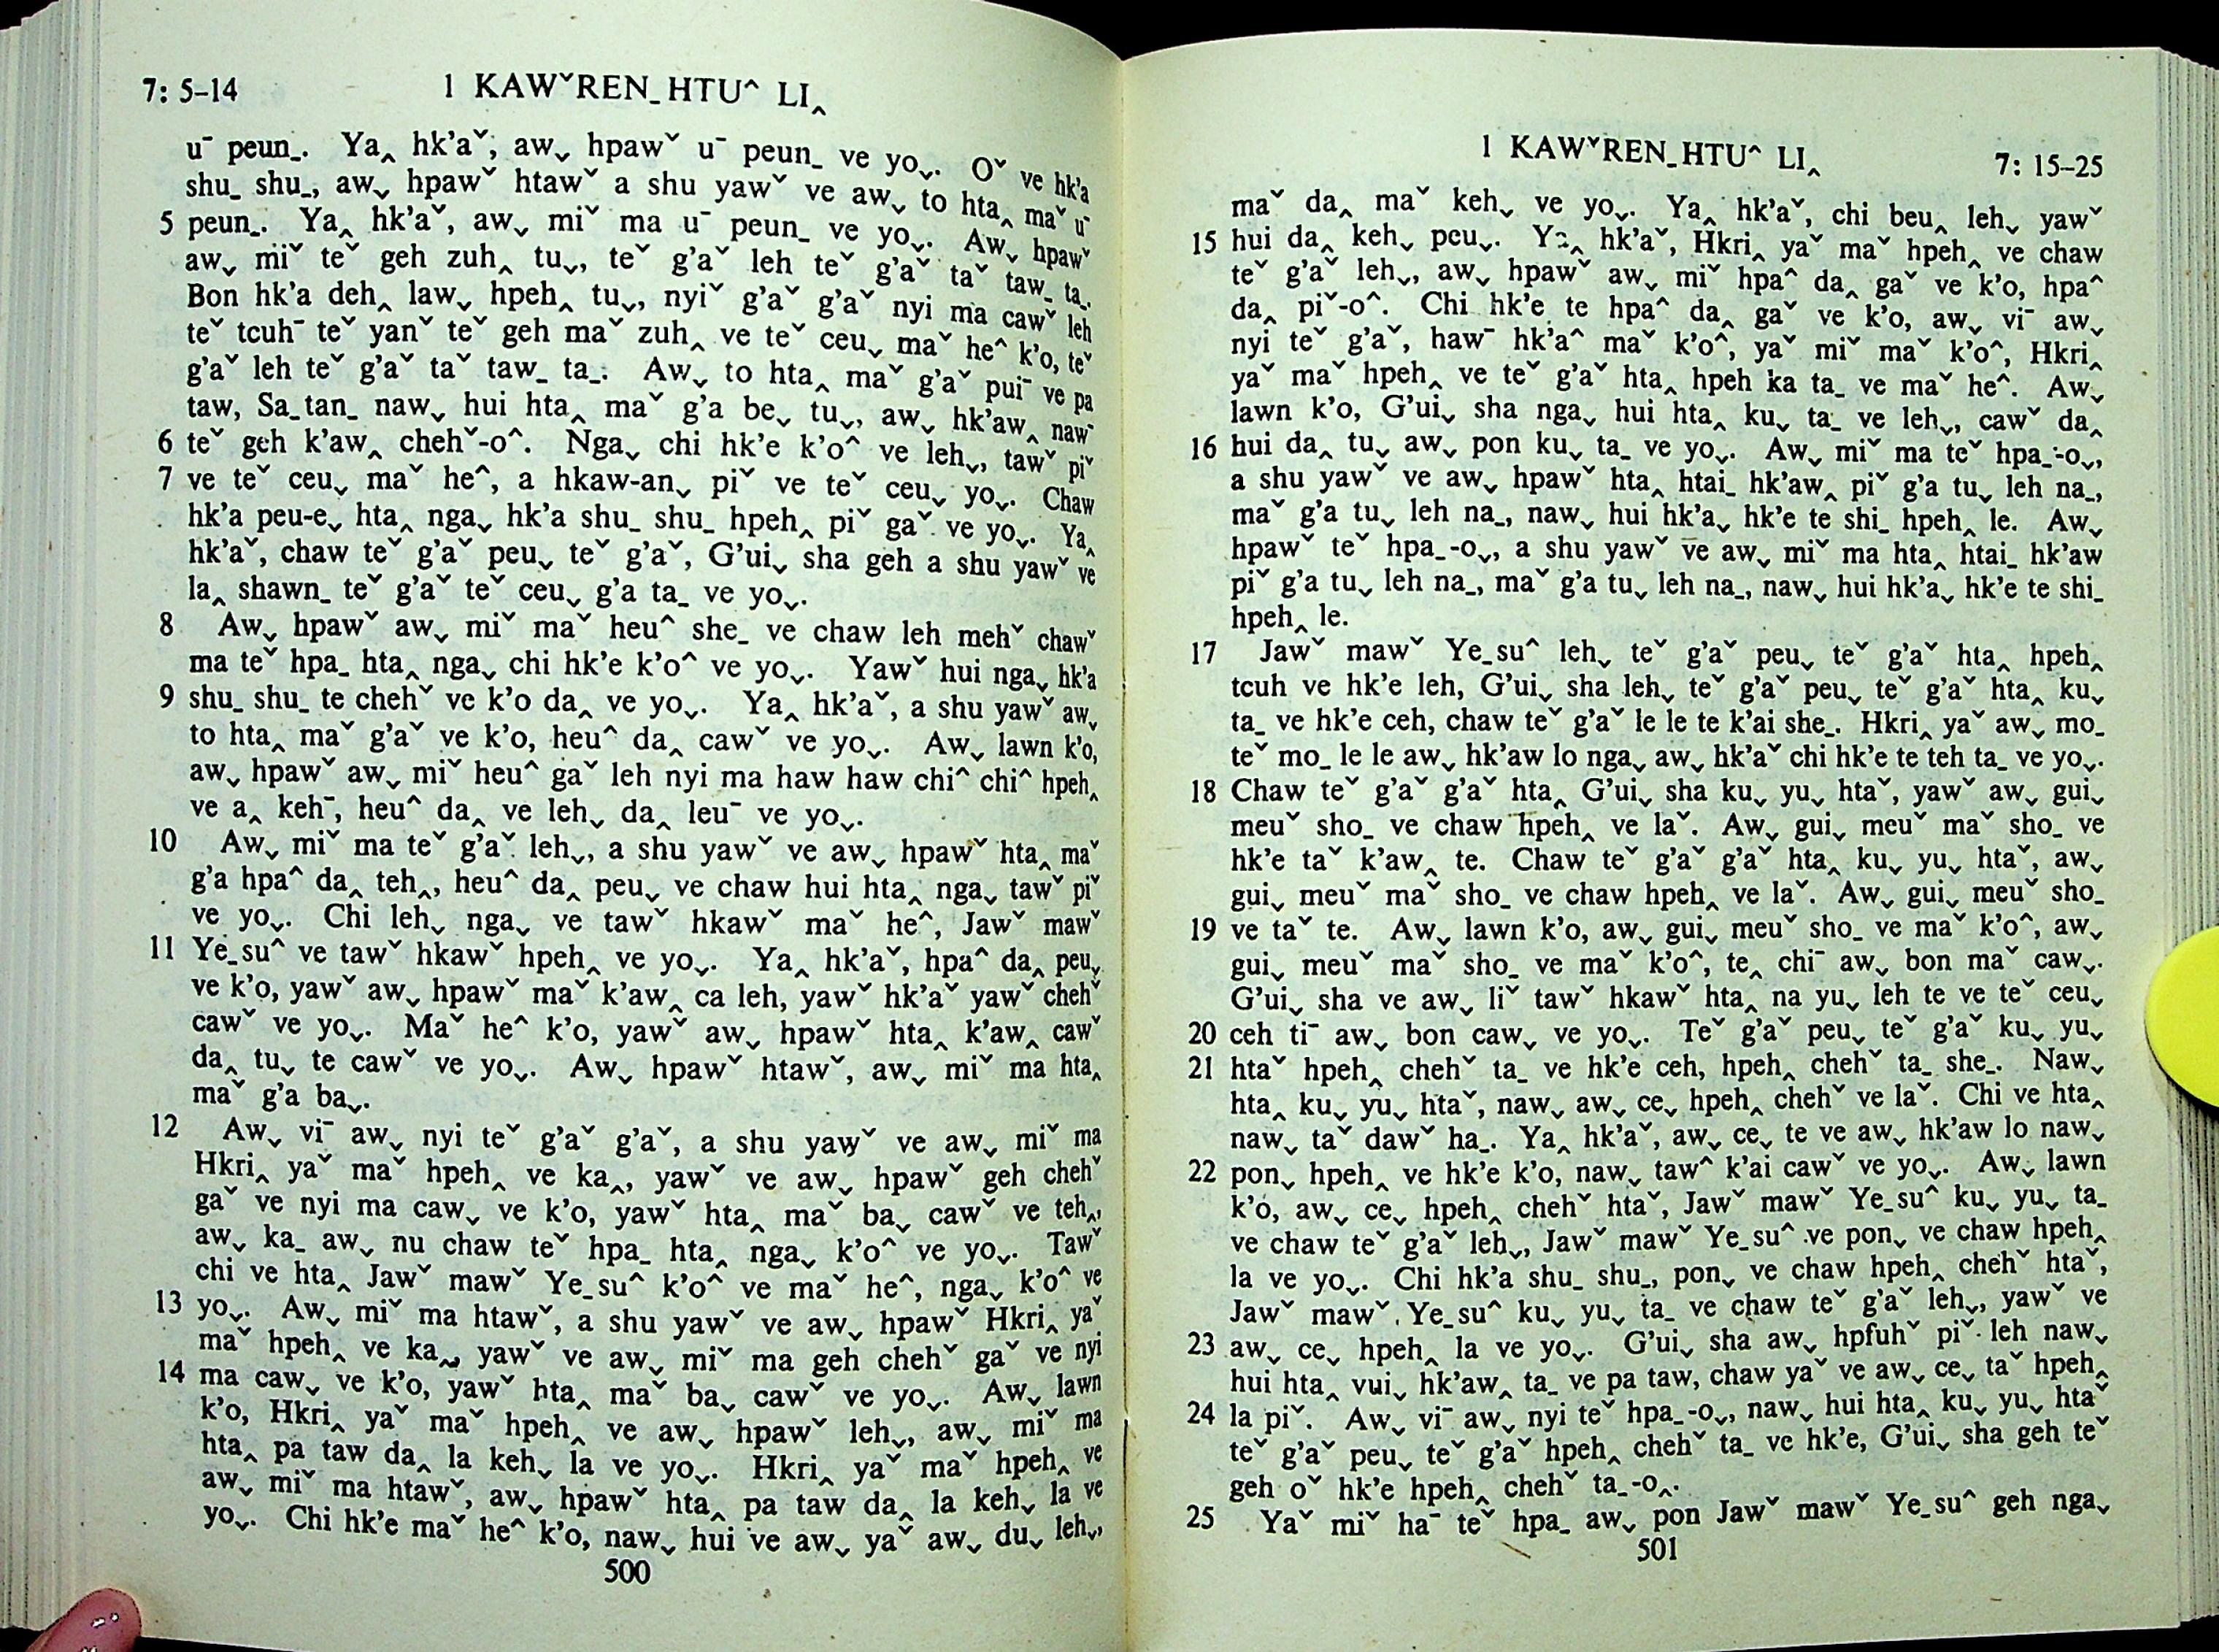 7: 5–14 1 KAWˇREN_HTU^ LI‸
uˉ peun_. Ya‸ hk’aˇ, awˬ hpawˇ uˉ peun_ ve yoˬ. Oˇ ve hk’a
shu_ shu_, awˬ hpawˇ htawˇ a shu yawˇ ve awˬ to hta‸ maˇ uˉ
5 peun_. Ya‸ hk’aˇ, awˬ miˇ ma uˉ peun_ ve yoˬ. Awˬ hpawˇ
awˬ miˇ teˇ geh zuh‸ tuˬ, teˇ g’aˇ leh teˇ g’aˇ taˇ taw_ ta_.
Bon hk’a deh‸ lawˬ hpeh‸ tuˬ, nyiˇ g’aˇ g’aˇ nyi ma cawˇ leh
teˇ tcuhˉ teˇ yanˇ teˇ geh maˇ zuh‸ ve teˇ ceuˬ maˇ he^ k’o, teˇ
g’aˇ leh teˇ g’aˇ taˇ taw_ ta_. Awˬ to hta‸ maˇ g’aˇ puiˉ ve pa
taw, Sa_tan_ nawˬ hui hta‸ maˇ g’a beˬ tuˬ, awˬ hk’aw‸ nawˉ
6 teˇ geh k’aw‸ chehˇ-o^. Ngaˬ chi hk’e k’o^ ve lehˬ, tawˇ piˇ
7 ve teˇ ceuˬ maˇ he^, a hkaw-anˬ piˇ ve teˇ ceuˬ yoˬ. Chaw
hk’a peu-eˬ hta‸ ngaˬ hk’a shu_ shu_ hpeh‸ piˇ gaˇ ve yoˬ. Ya‸
hk’aˇ, chaw teˇ g’aˇ peuˬ teˇ g’aˇ, G’uiˬ sha geh a shu yawˇ ve
la‸ shawn_ teˇ g’aˇ teˇ ceuˬ g’a ta_ ve yoˬ.
8 Awˬ hpawˇ awˬ miˇ maˇ heu^ she_ ve chaw leh mehˇ chawˇ
ma teˇ hpa_ hta‸ ngaˬ chi hk’e k’o^ ve yoˬ. Yawˇ hui ngaˬ hk’a
9 shu_ shu_ te chehˇ ve k’o da‸ ve yoˬ. Ya‸ hk’aˇ, a shu yawˇ awˬ
to hta‸ maˇ g’aˇ ve k’o, heu^ da‸ cawˇ ve yoˬ. Awˬ lawn k’o,
awˬ hpawˇ awˬ miˇ heu^ gaˇ leh nyi ma haw haw chi^ chi^ hpeh‸
ve a‸ kehˉ, heu^ da‸ ve lehˬ da‸ leuˉ ve yoˬ.
10 Awˬ miˇ ma teˇ g’aˇ lehˬ, a shu yawˇ ve awˬ hpawˇ hta‸ maˇ
g’a hpa^ da‸ teh‸, heu^ da‸ peuˬ ve chaw hui hta‸ ngaˬ tawˇ piˇ
ve yoˬ. Chi lehˬ ngaˬ ve tawˇ hkawˇ maˇ he^, Jawˇ mawˇ
11 Ye_su^ ve tawˇ hkawˇ hpeh‸ ve yoˬ. Ya‸ hk’aˇ, hpa^ da‸ peuˬ
ve k’o, yawˇ awˬ hpawˇ maˇ k’aw‸ ca leh, yawˇ hk’aˇ yawˇ chehˇ
cawˇ ve yoˬ. Maˇ he^ k’o, yawˇ awˬ hpawˇ hta‸ k’aw‸ cawˇ
da‸ tuˬ te cawˇ ve yoˬ. Awˬ hpawˇ htawˇ, awˬ miˇ ma hta‸
maˇ g’a baˬ.
12 Awˬ viˉ awˬ nyi teˇ g’aˇ g’aˇ, a shu yawˇ ve awˬ miˇ ma
Hkri‸ yaˇ maˇ hpeh‸ ve ka‸, yawˇ ve awˬ hpawˇ geh chehˇ
gaˇ ve nyi ma cawˬ ve k’o, yawˇ hta‸ maˇ baˬ cawˇ ve teh‸,
awˬ ka_ awˬ nu chaw teˇ hpa_ hta‸ ngaˬ k’o^ ve yoˬ. Tawˇ
chi ve hta‸ Jawˇ mawˇ Ye_su^ k’o^ ve maˇ he^, ngaˬ k’o^ ve
13 yoˬ. Awˬ miˇ ma htawˇ, a shu yawˇ ve awˬ hpawˇ Hkri‸ yaˇ
maˇ hpeh‸ ve ka‸, yawˇ ve awˬ miˇ ma geh chehˇ gaˇ ve nyi
14 ma cawˬ ve k’o, yawˇ hta‸ maˇ baˬ cawˇ ve yoˬ. Awˬ lawn
k’o, Hkri‸ yaˇ maˇ hpeh‸ ve awˬ hpawˇ lehˬ, awˬ miˇ ma
hta‸ pa taw da‸ la kehˬ la ve yoˬ. Hkri‸ yaˇ maˇ hpeh‸ ve
awˬ miˇ ma htawˇ, awˬ hpawˇ hta‸ pa taw da‸ la kehˬ la ve
yoˬ. Chi hk’e maˇ he^ k’o, nawˬ hui ve awˬ yaˇ awˬ duˬ lehˬ,
500
1 KAWˇREN_HTU^ LI‸ 7: 15–25
maˇ da‸ maˇ kehˬ ve yoˬ. Ya‸ hk’aˇ, chi beu‸ lehˬ yawˇ
15 hui da‸ kehˬ peuˬ. Ya‸ hk’aˇ, Hkri‸ yaˇ maˇ hpeh‸ ve chaw
teˇ g’aˇ lehˬ, awˬ hpawˇ awˬ miˇ hpa^ da‸ gaˇ ve k’o, hpa^
da‸ piˇ-o^. Chi hk’e te hpa^ da‸ gaˇ ve k’o, awˬ viˉ awˬ
nyi teˇ g’aˇ, hawˉ hk’a^ maˇ k’o^, yaˇ miˇ maˇ k’o^, Hkri‸
yaˇ maˇ hpeh‸ ve teˇ g’aˇ hta‸ hpeh ka ta_ ve maˇ he^. Awˬ
lawn k’o, G’uiˬ sha ngaˬ hui hta‸ kuˬ ta_ ve lehˬ, cawˇ da‸
16 hui da‸ tuˬ awˬ pon kuˬ ta_ ve yoˬ. Awˬ miˇ ma teˇ hpa_-oˬ,
a shu yawˇ ve awˬ hpawˇ hta‸ htai_ hk’aw‸ piˇ g’a tuˬ leh na_,
maˇ g’a tuˬ leh na_, nawˬ hui hk’aˬ hk’e te shi_ hpeh‸ le. Awˬ
hpawˇ teˇ hpa_-oˬ, a shu yawˇ ve awˬ miˇ ma hta‸ htai_ hk’aw
piˇ g’a tuˬ leh na_, maˇ g’a tuˬ leh na_, nawˬ hui hk’aˬ hk’e te shi_
hpeh‸ le.
17 Jawˇ mawˇ Ye_su^ lehˬ teˇ g’aˇ peuˬ teˇ g’aˇ hta‸ hpeh‸
tcuh ve hk’e leh, G’uiˬ sha lehˬ teˇ g’aˇ peuˬ teˇ g’aˇ hta‸ kuˬ
ta_ ve hk’e ceh, chaw teˇ g’aˇ le le te k’ai she_. Hkri‸ yaˇ awˬ mo_
teˇ mo_ le le awˬ hk’aw lo ngaˬ awˬ hk’aˇ chi hk’e te teh ta_ ve yoˬ.
18 Chaw teˇ g’aˇ g’aˇ hta‸ G’uiˬ sha kuˬ yuˬ htaˇ, yawˇ awˬ guiˬ
meuˇ sho_ ve chaw hpeh‸ ve laˇ. Awˬ guiˬ meuˇ maˇ sho_ ve
hk’e taˇ k’aw‸ te. Chaw teˇ g’aˇ g’aˇ hta‸ kuˬ yuˬ htaˇ, awˬ
guiˬ meuˇ maˇ sho_ ve chaw hpeh‸ ve laˇ. Awˬ guiˬ meuˇ sho_
19 ve taˇ te. Awˬ lawn k’o, awˬ guiˬ meuˇ sho_ ve maˇ k’o^, awˬ
guiˬ meuˇ maˇ sho_ ve maˇ k’o^, te‸ chiˉ awˬ bon maˇ cawˬ.
G’uiˬ sha ve awˬ liˇ tawˇ hkawˇ hta‸ na yuˬ leh te ve teˇ ceuˬ
20 ceh tiˉ awˬ bon cawˬ ve yoˬ. Teˇ g’aˇ peuˬ teˇ g’aˇ kuˬ yuˬ
21 htaˇ hpeh‸ chehˇ ta_ ve hk’e ceh, hpeh‸ chehˇ ta_ she_. Nawˬ
hta‸ kuˬ yuˬ htaˇ, nawˬ awˬ ceˬ hpeh‸ chehˇ ve laˇ. Chi ve hta‸
nawˬ taˇ dawˇ ha_. Ya‸ hk’aˇ, awˬ ceˬ te ve awˬ hk’aw lo nawˬ
22 ponˬ hpeh‸ ve hk’e k’o, nawˬ taw^ k’ai cawˇ ve yoˬ. Awˬ lawn
k’o, awˬ ceˬ hpeh‸ chehˇ htaˇ, Jawˇ mawˇ Ye_su^ kuˬ yuˬ ta_
ve chaw teˇ g’aˇ lehˬ, Jawˇ mawˇ Ye_su^ ve ponˬ ve chaw hpeh‸
la ve yoˬ. Chi hk’a shu_ shu_, ponˬ ve chaw hpeh‸ chehˇ htaˇ,
Jawˇ mawˇ Ye_su^ kuˬ yuˬ ta_ ve chaw teˇ g’aˇ lehˬ, yawˇ ve
23 awˬ ceˬ hpeh‸ la ve yoˬ. G’uiˬ sha awˬ hpfuhˇ piˇ leh nawˬ
hui hta‸ vuiˬ hk’aw‸ ta_ ve pa taw, chaw yaˇ ve awˬ ceˬ taˇ hpeh‸
24 la piˇ. Awˬ viˉ awˬ nyi teˇ hpa_-oˬ, nawˬ hui hta‸ kuˬ yuˬ htaˇ
teˇ g’aˇ peuˬ teˇ g’aˇ hpeh‸ chehˇ ta_ ve hk’e, G’uiˬ sha geh teˇ
geh oˇ hk’e hpeh‸ chehˇ ta_-o‸.
25 Yaˇ miˇ haˉ teˇ hpa_ awˬ pon Jawˇ mawˇ Ye_su^ geh ngaˬ
501